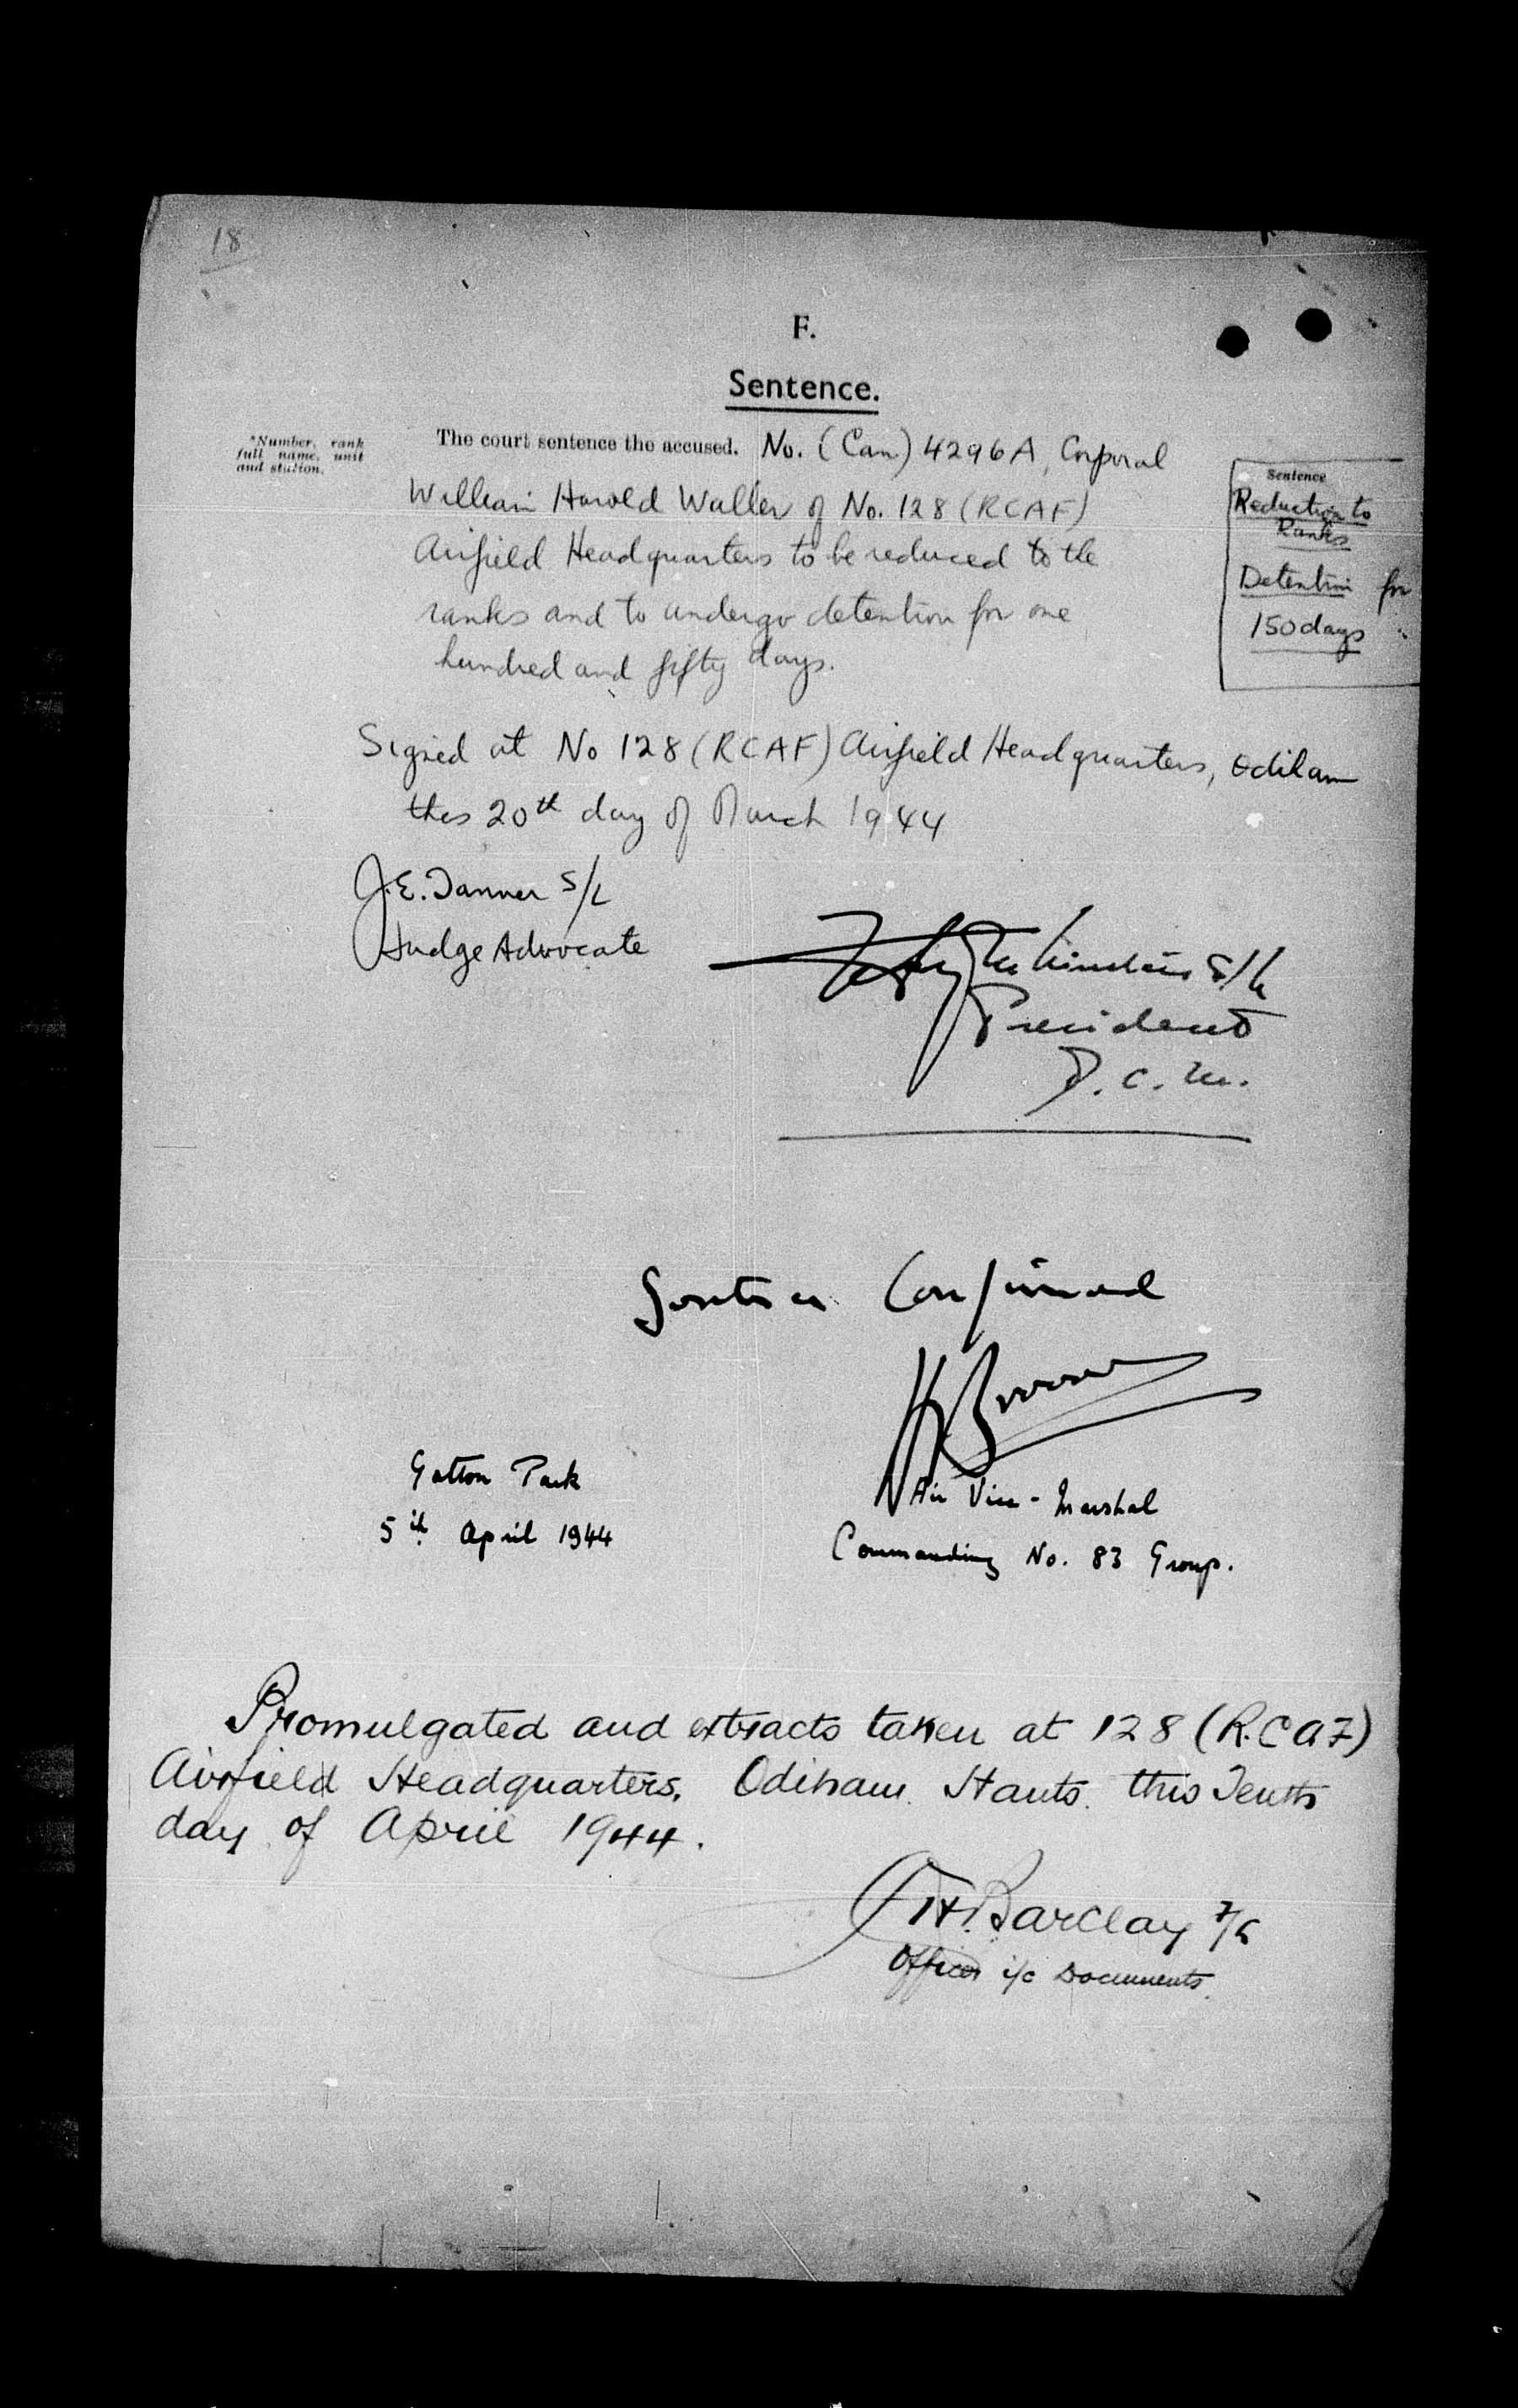 18
F.
Sentence.
*Number, rank
full name, unit
and station.
The court sentence the accused. No. (Can) 4296A, Corporal
William Harold Waller of No. 128 (RCAF)
Airfield Headquarters to be reduced to the
ranks and to undergo detention for one
hundred and fifty days.
Sentence
Reduction to
Ranks
Detention for
150 days "
Signed at No 128 (RCAF) Airfield Headquarters, Odiham
this 20th day of March 1944
J.E. Tanner S/L
Judge Advocate
S/L
President
D.C.M.
Sentence Confirmed
Gatton Park
5th April 1944
Air Vice-Marshal
Commanding No. 83 Group.
Promulgated and extracts taken at 128 (R.C.A.F)
Airfield Headquarters. Odiham. Hants. this Tenth
day of April 1944.
H. Barclay F/L
Officer i/c Documents.